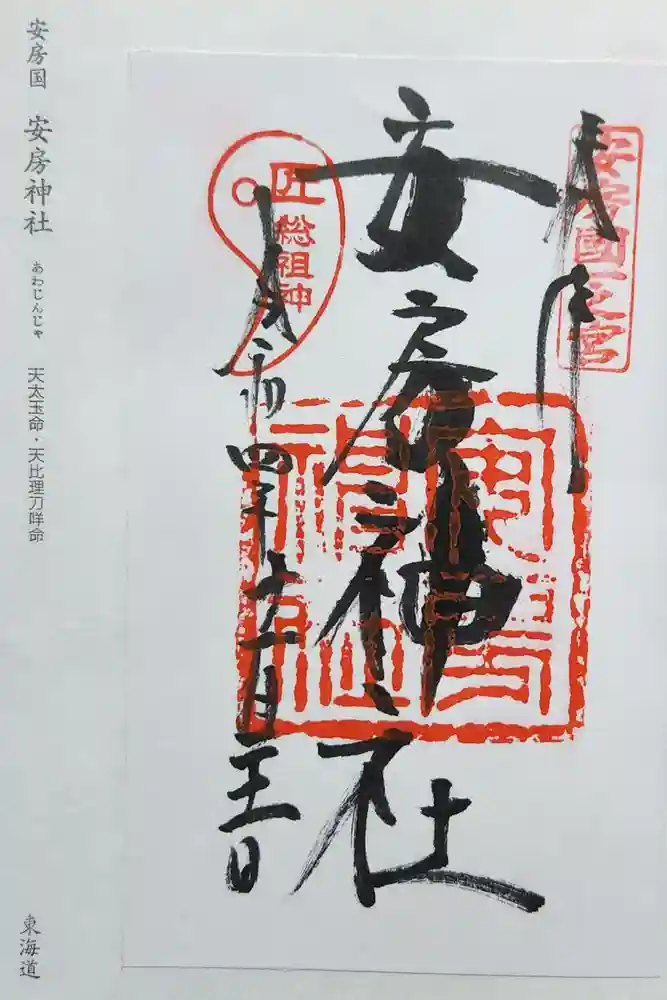 安房國一之宮
奉拝
安房神社
匠総祖神
令和四年十一月
安房国 安房神社 あわじんじゃ 天太玉命・天比理刀咩命
東海道